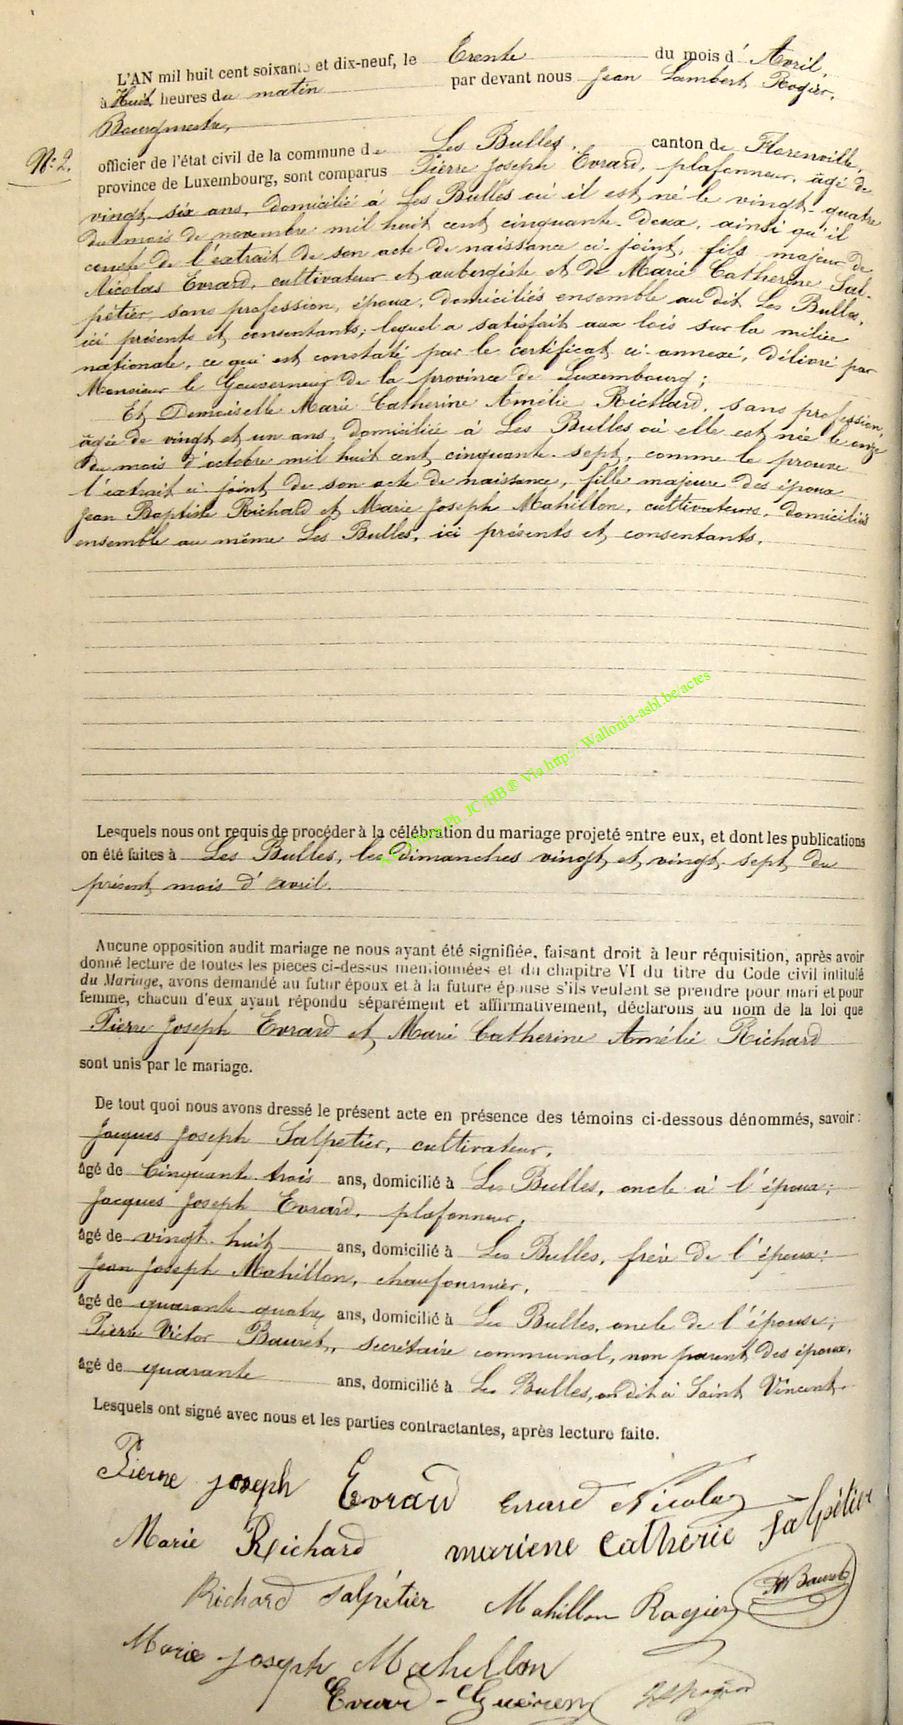 L'AN mil huit cent soixante et dix-neuf, le Trente du mois d' Avril,
à Huit heures du matin par devant nous Jean Lambert Rogier,
Bourgmestre,
N° 2. officier de l'état civil de la commune de Les Bulles, canton de Florenville,
province de Luxembourg, sont comparus Pierre Joseph Evrard, plafonneur, âgé de
vingt-six ans, domicilié à Les Bulles où il est né le vingt-quatre
du mois de novembre mil huit cent cinquante-deux, ainsi qu'il
conste de l'extrait de son acte de naissance ci-joint, fils majeur de
Nicolas Evrard, cultivateur et aubergiste et de Marie Catherine Sal-
pétier, sans profession, époux, domiciliés ensemble au dit Les Bulles,
ici présents et consentants; lequel a satisfait aux lois sur la milice
nationale, ce qui est constaté par le certificat ci-annexé, délivré par
Monsieur le Gouverneur de la province de Luxembourg;
Et Demoiselle Marie Catherine Amélie Richard, sans profession,
âgée de vingt et un ans, domiciliée à Les Bulles où elle est née le onze
du mois d'octobre mil huit cent cinquante-sept, comme le prouve
l'extrait ci-joint de son acte de naissance, fille majeure des époux
Jean Baptiste Richard et Marie Joseph Mahillon, cultivateurs, domiciliés
ensemble au même Les Bulles, ici présents et consentants.
Lesquels nous ont requis de procéder à la célébration du mariage projeté entre eux, et dont les publications
on été faites à Les Bulles, les dimanches vingt et vingt-sept du
présent mois d'avril.
Via http://Wallonia-asbl.be/actes
Aucune opposition audit mariage ne nous ayant été signifiée, faisant droit à leur réquisition, après avoir
donné lecture de toutes les pieces ci-dessus mentionnées et du chapitre VI du titre du Code civil intitulé
du Mariage, avons demandé au futur époux et à la future épouse s'ils veulent se prendre pour mari et pour
femme, chacun d'eux ayant répondu séparément et affirmativement, déclarons au nom de la loi que
Pierre Joseph Evrard et Marie Catherine Amélie Richard
sont unis par le mariage.
De tout quoi nous avons dressé le présent acte en présence des témoins ci-dessous dénommés, savoir:
Jacques Joseph Salpétier, cultivateur,
âgé de Cinquante-trois ans, domicilié à Les Bulles, oncle à l'époux;
Jacques Joseph Evrard, plafonneur,
âgé de vingt-huit ans, domicilié à Les Bulles, frère de l'époux;
Jean Joseph Mahillon, chaufournier,
âgé de quarante-quatre ans, domicilié à Les Bulles, oncle de l'épouse;
Pierre Victor Bauret, secrétaire communal, non parent des époux,
âgé de quarante ans, domicilié à Les Bulles, on dit à Saint Vincent.
Lesquels ont signé avec nous et les parties contractantes, après lecture faite.
Pierre joseph Evrard Evrard Nicolas
Marie Richard mariene Catherie Salpétier
Richard Salpétier Mahillon Rogier Bauret
Marie-joseph Mahillon
Evrard-Guérin